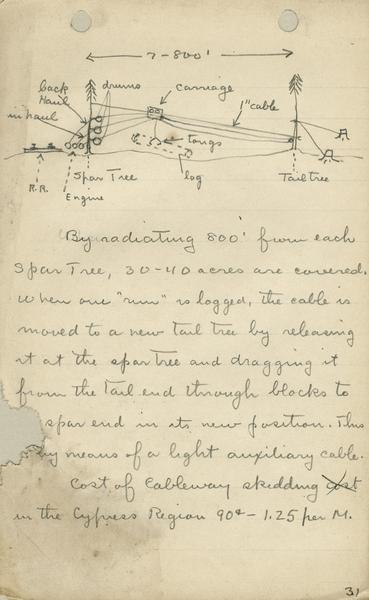 7-800'
drums
back
haul
carriage
in haul
1" cable
tongs
log
R.R.
Engine
Spar Tree
Tail tree
By radiating 800' from each
Spar Tree, 30-40 acres are covered.
When one "run" is logged, the cable is
moved to a new tail tree by releasing
it at the spar tree and dragging it
from the tail end through blocks to
spar end in its new position. This
by means of a light auxiliary cable.
Cost of Cableway skidding cost
in the Cypress Region 90¢ - 1.25 per M.
31